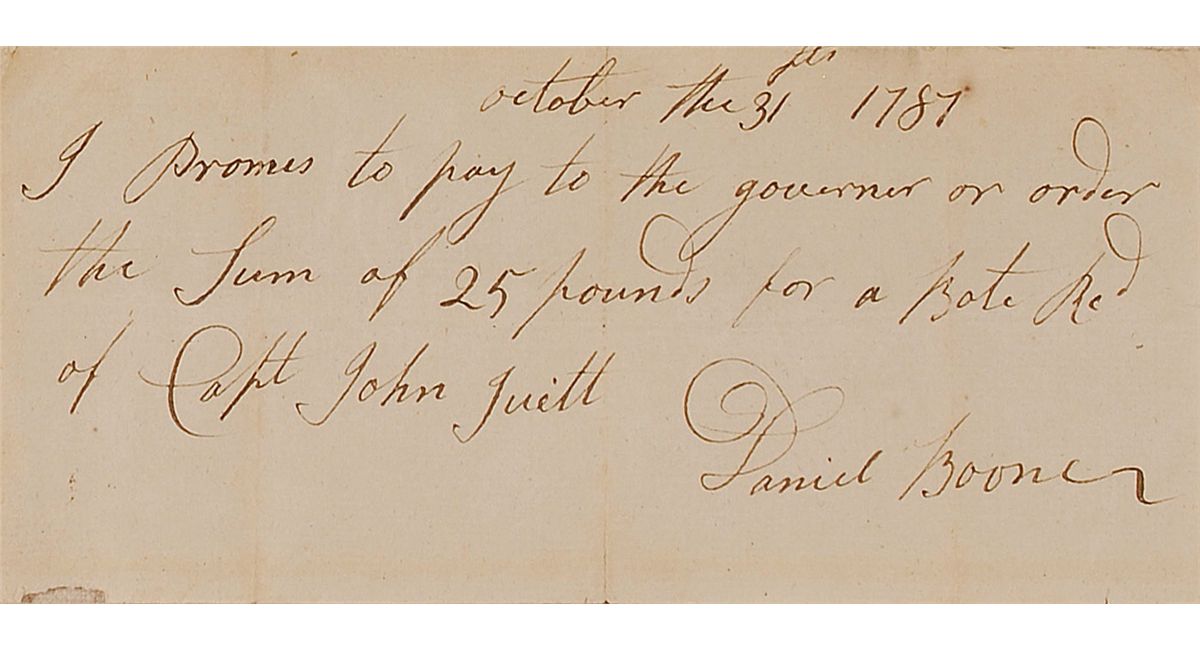 october the 31 1787
I Promes to pay to the governer or order
the Sum of 25 pounds for a Bote Red
of Capt John Juitt
Daniel Boone